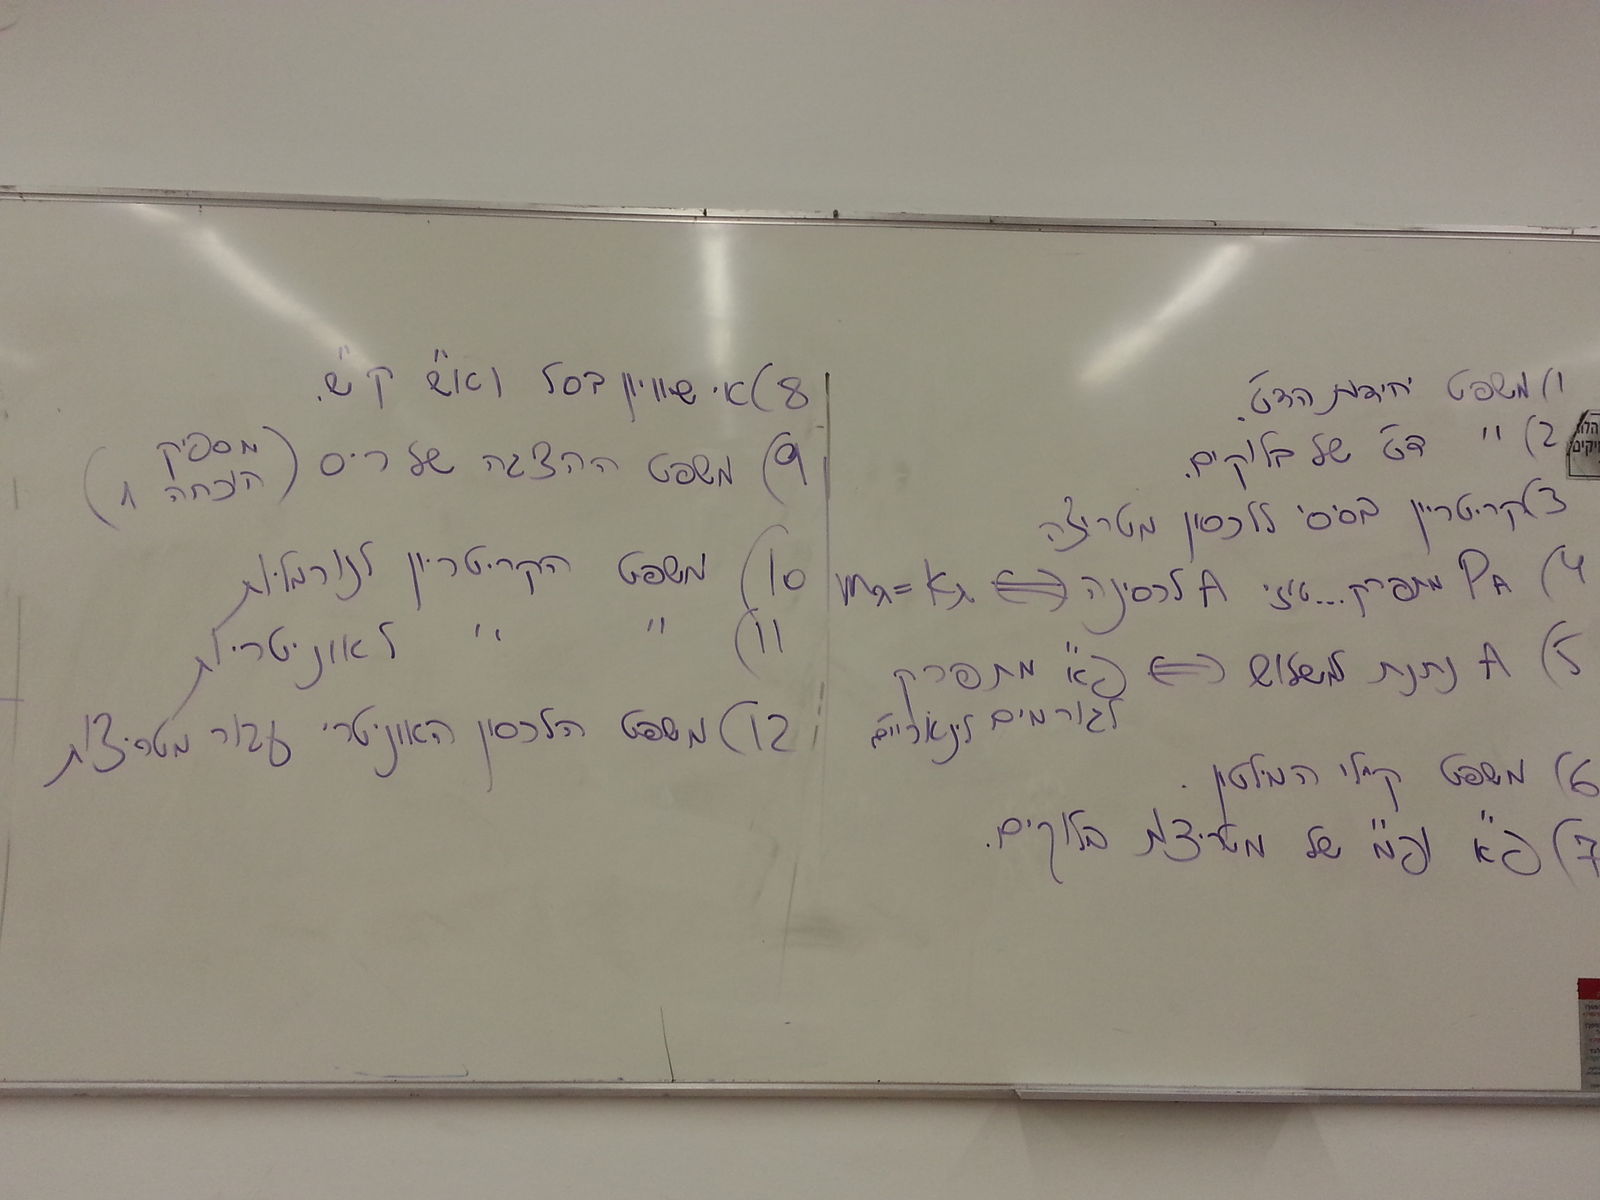 1) משפט יחידות הדט'.
2) " דט' של בלוקים.
3) קריטריון בסיסי ללכסון מטריצה
4) P_A מתפרק... אזי A לכסינה ⟺ m_λ = k_λ
5) A ניתנת לשילוש ⟺ פ"א מתפרק
לגורמים לינאריים
6) משפט קיילי המילטון.
7) פ"א ופ"מ של מטריצת בלוקים.
8) אי שוויון בסל ואוש ק"ש.
9) משפט ההצגה של ריס (מספיק
הוכחה 1)
10) משפט הקריטריון לנורמליות
11) " " לאוניטריות
12) משפט הלכסון האוניטרי עבור מטריצות